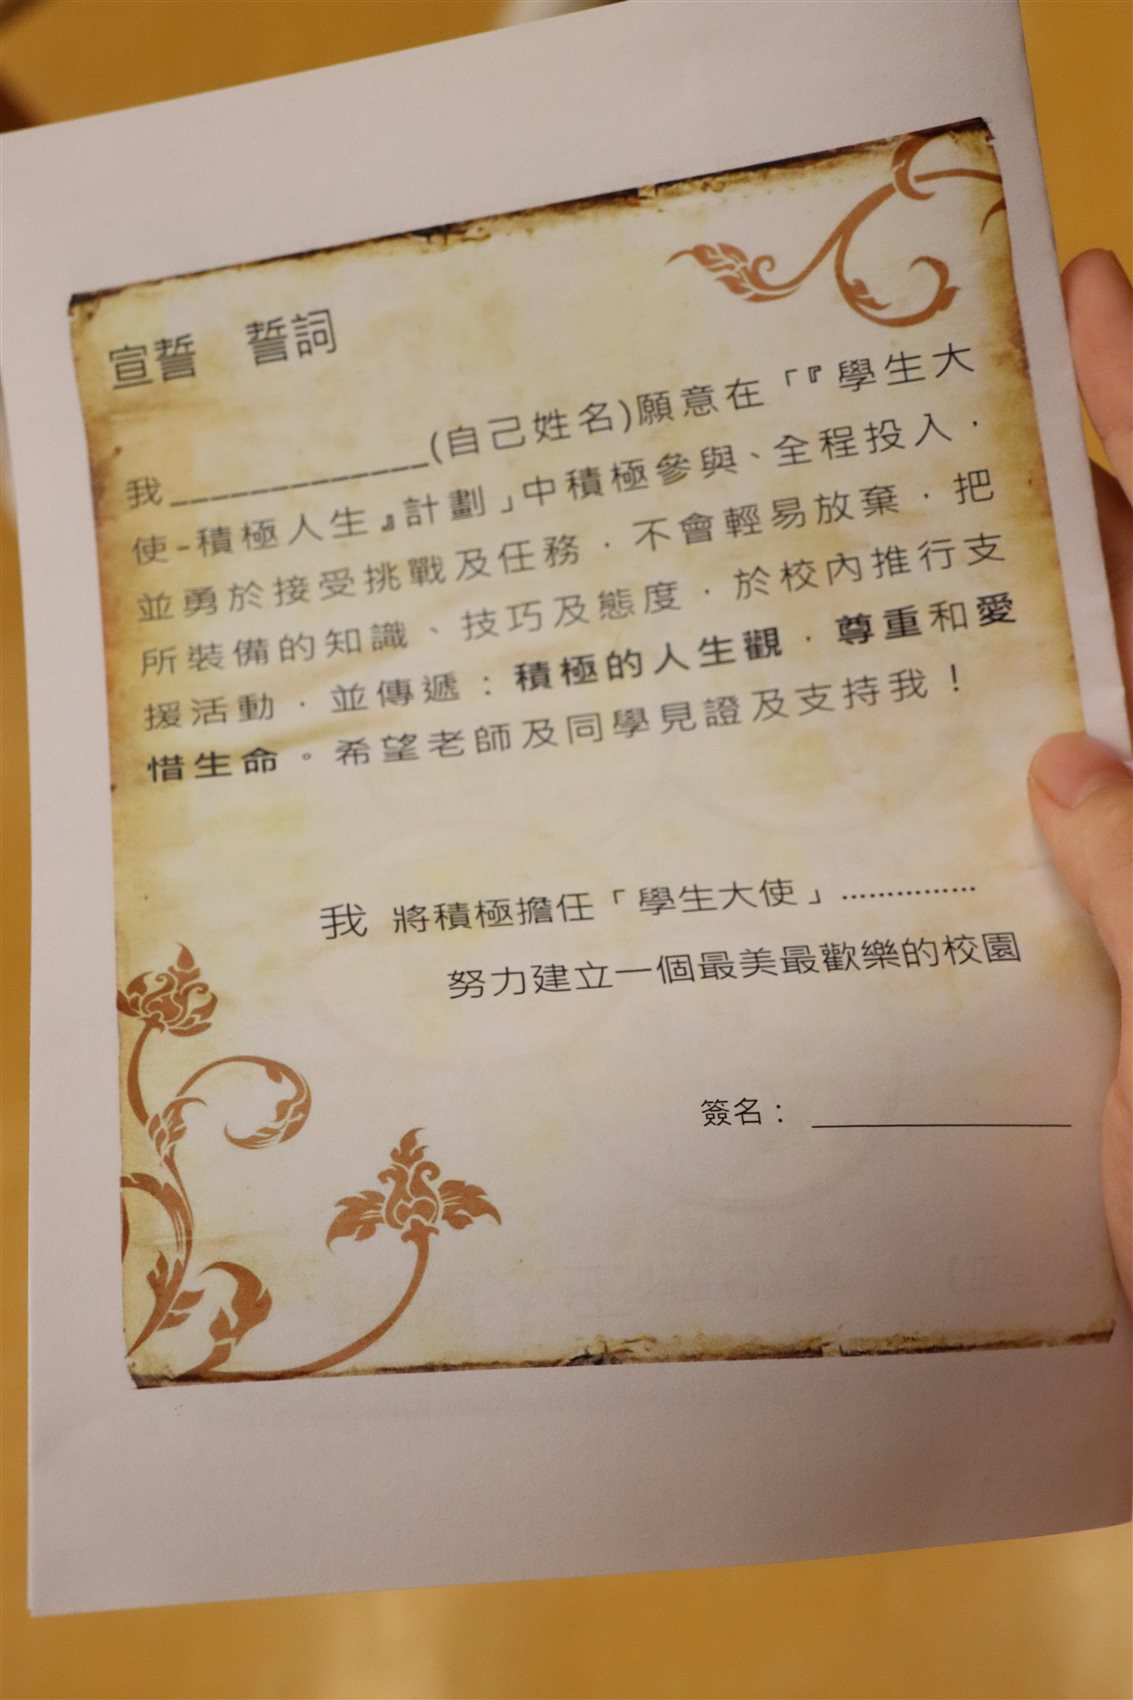 宣誓　誓詞
我______________(自己姓名)願意在「『學生大
使-積極人生』計劃」中積極參與、全程投入，
並勇於接受挑戰及任務，不會輕易放棄，把
所裝備的知識、技巧及態度，於校內推行支
援活動，並傳遞：積極的人生觀，尊重和愛
惜生命。希望老師及同學見證及支持我！
我 將積極擔任「學生大使」...............
努力建立一個最美最歡樂的校園
簽名： __________________